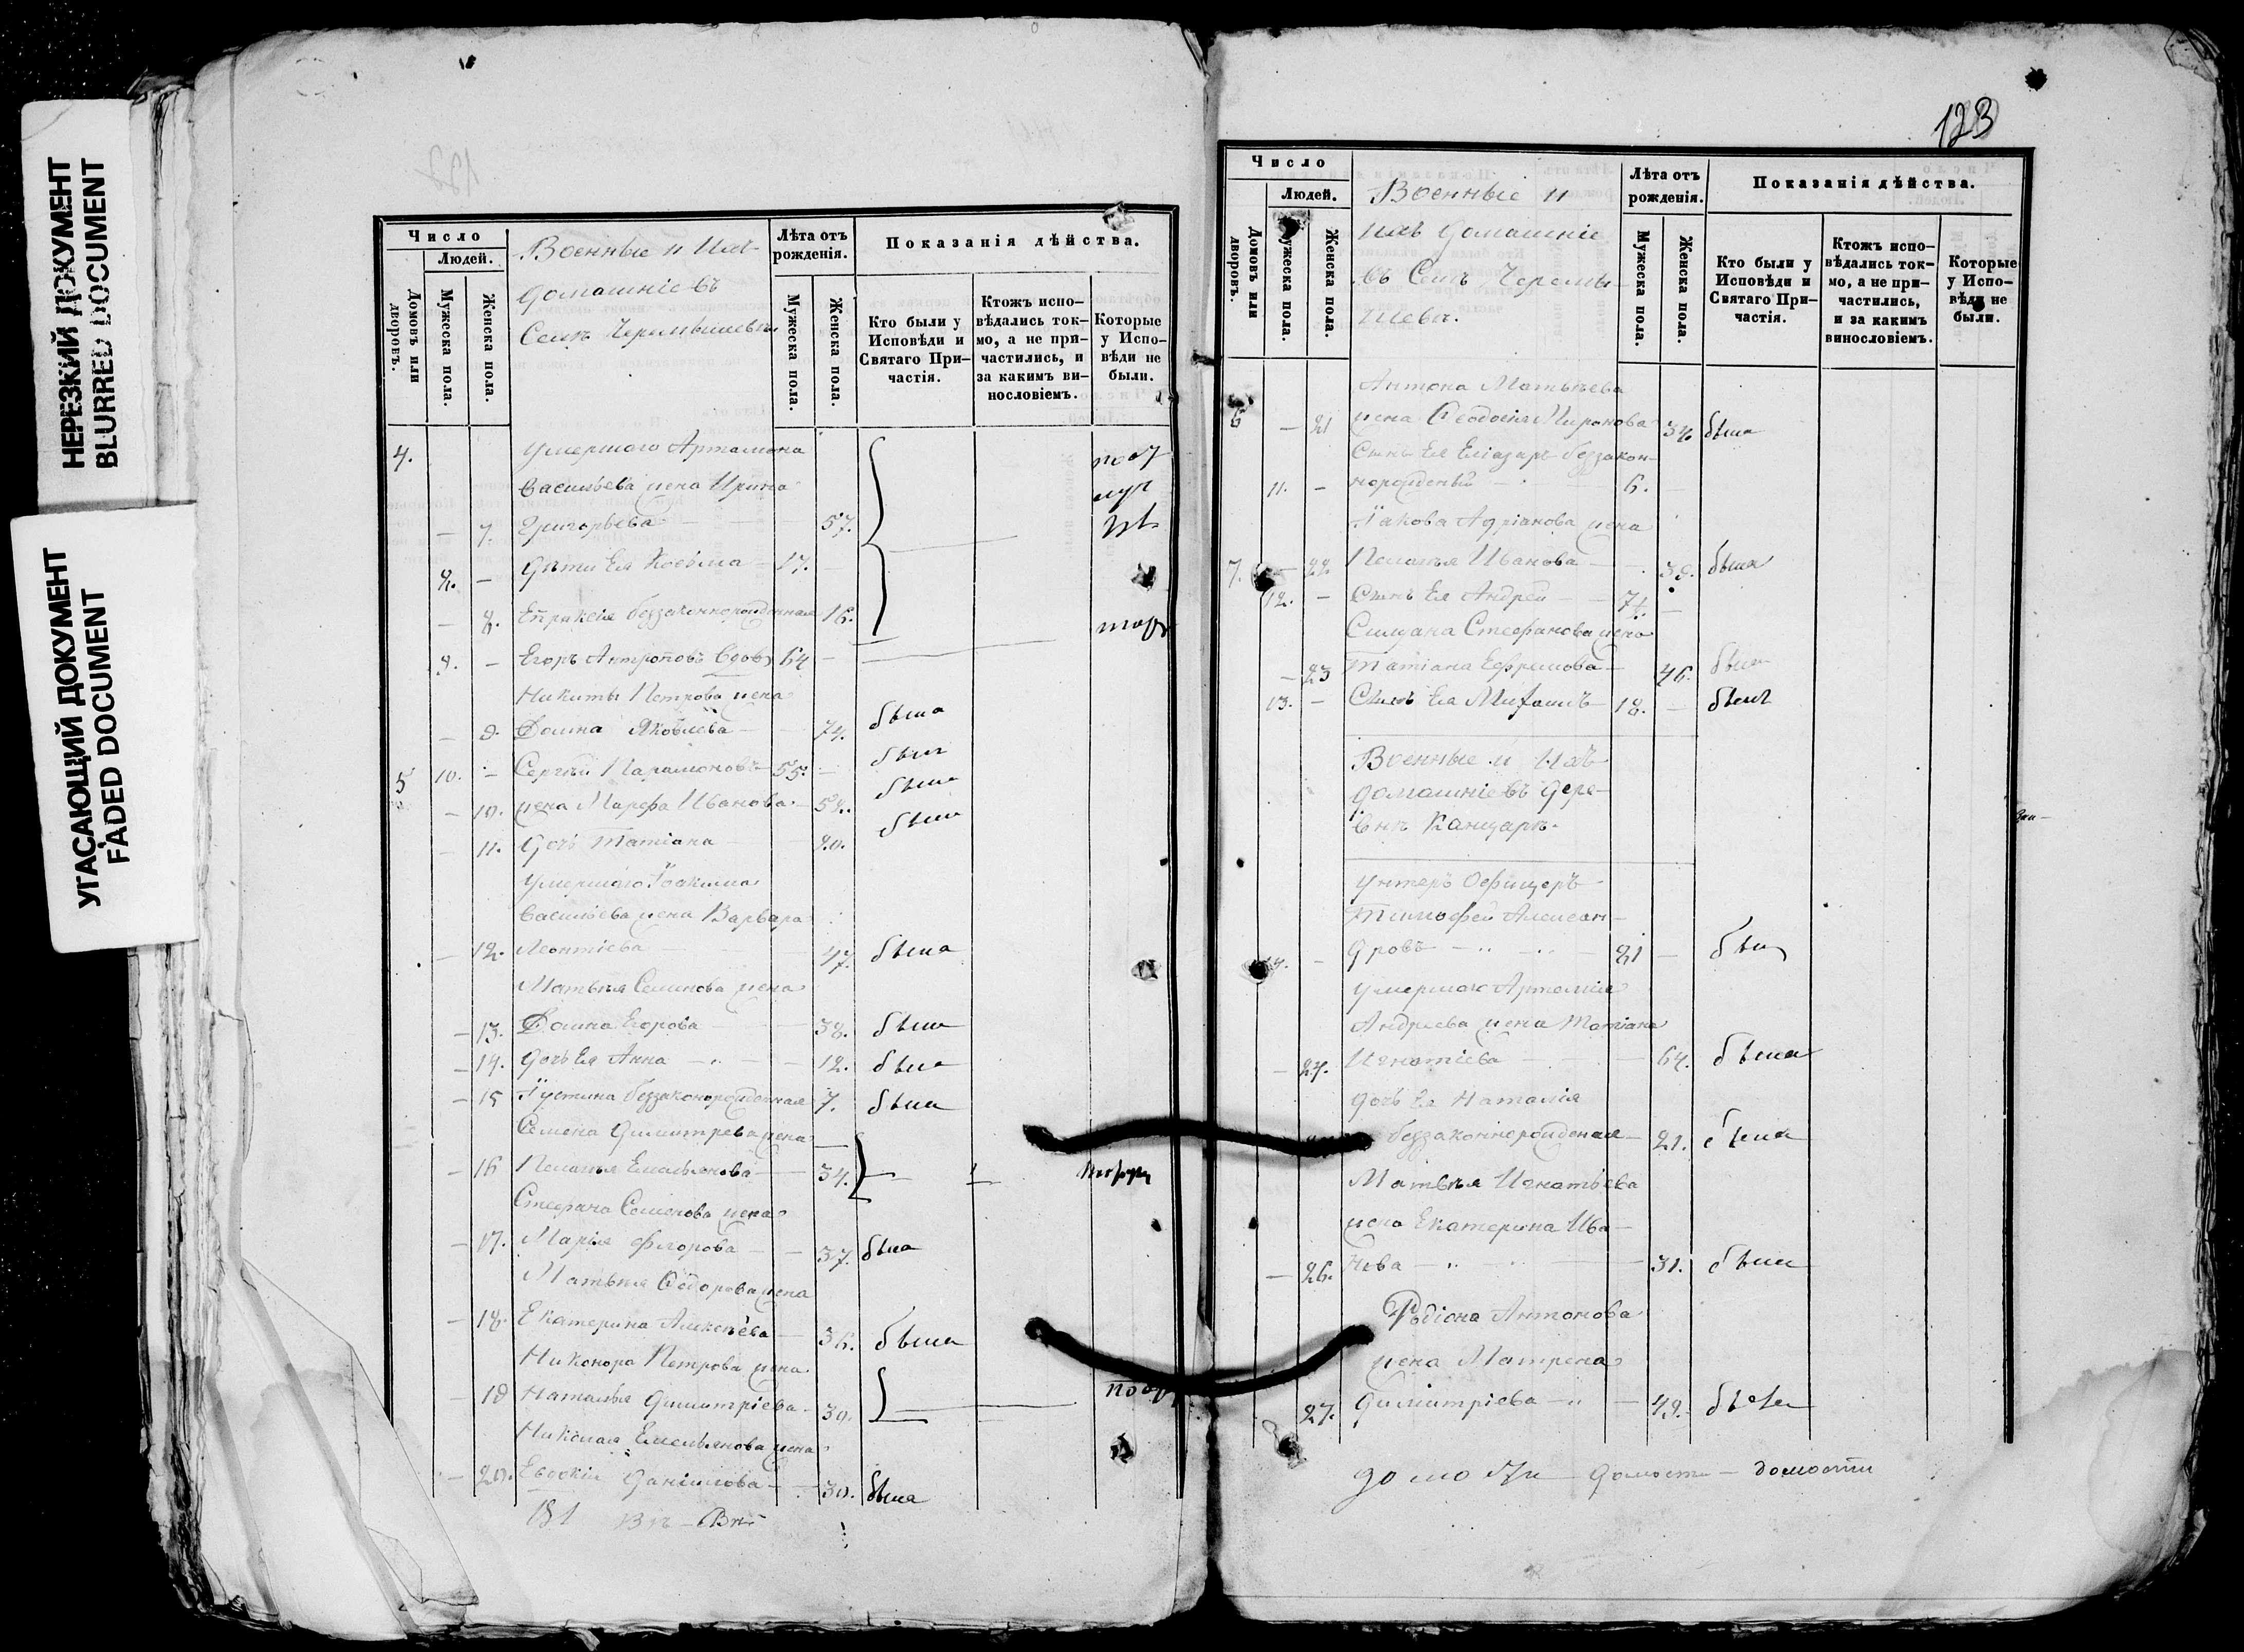 НЕРЕЗКИЙ ДОКУМЕНТ
BLURRED DOCUMENT
УГАСАЮЩИЙ ДОКУМЕНТ
FADED DOCUMENT
Число
Людей.
Домовъ или дворовъ.
Мужеска пола.
Женска пола.
Военные и Ихъ
домашніе въ
Селѣ
Лѣта отъ рожденія.
Мужеска пола.
Женска пола.
Показанія дѣйства.
Кто были у Исповѣди и Святаго При-частія.
Ктожъ испо-вѣдались ток-мо, а не при-частились, и за какимъ ви-нословіемъ.
Которые у Испо-вѣди не были.
4. Умершаго Артамона
Васильева жена Ирина
— 7. Григорьева 57.
8. — Дѣти Ея Косьма 17.
— 8. беззаконнорожденная 16.
9. — Егоръ Антроповъ Вдовъ 64 —
Никиты Петрова жена
— 9. Домна Яковлева 74. была
5 10. — Сергѣй Парамоновъ 55. — былъ
— 10. жена Марѳа Иванова 52. была
— 11. Дочь Татіана 20. была
Умершаго Іоакима
Васильева жена Варвара
— 12. Леонтіева 47. была
Матвѣя Семенова жена
— 13. Домна Егорова 38. была
— 14. дочь Ея Анна 12. была
— 15 Іустина беззаконорожденная 7. была
Семена Димитрева жена
— 16 Пелагья Емельянова 34.
Стефана Семенова жена
— 17. Марія 37. была
Матвѣя Ѳедорова жена
— 18. Екатерина Алексѣева 36. была
Никонора Петрова жена
— 19 Наталья Димитріева 30.
Николая Емельянова жена
— 20. Евдокія Даніилова 30. была
123
Число
Людей.
Домовъ или дворовъ.
Мужеска пола.
Женска пола.
Военные и
ихъ домашніе
въ Селѣ Черемы-
шевѣ.
Лѣта отъ рожденія.
Мужеска пола.
Женска пола.
Показанія дѣйства.
Кто были у Исповѣди и Святаго При-частія.
Ктожъ испо-вѣдались ток-мо, а не при-частились, и за какимъ винословіемъ.
Которые у Испо-вѣди не были.
Антона Матвѣева
6 — 21 жена Ѳеодосія Миронова 34. была
Сынъ Ея Еліазаръ беззакон-
11. — норожденый 6.
Іакова Адріанова жена
7. — 22 Пелагья Иванова была
12. — Сынъ Ея Андрей —
Стефанова жена
— 23 Татіана Ефремова 46. была
13. — Сынъ Ея Михаилъ 18. — былъ
Военные и Ихъ
домашніе въ дере-
внѣ
Унтеръ Офицеръ
Тимофей Алексан-
14. — дровъ 21 — былъ
Умершаго Артемія
Андреева жена Татіана
— 24. Игнатіева 64. была
дочь Ея Наталія
беззаконнорожденая 21. была
Матвѣя Игнатьева
жена Екатерина Ива-
— 26. нова 31. была
Родіона Антонова
жена Матрена
27. Димитріева 49. была